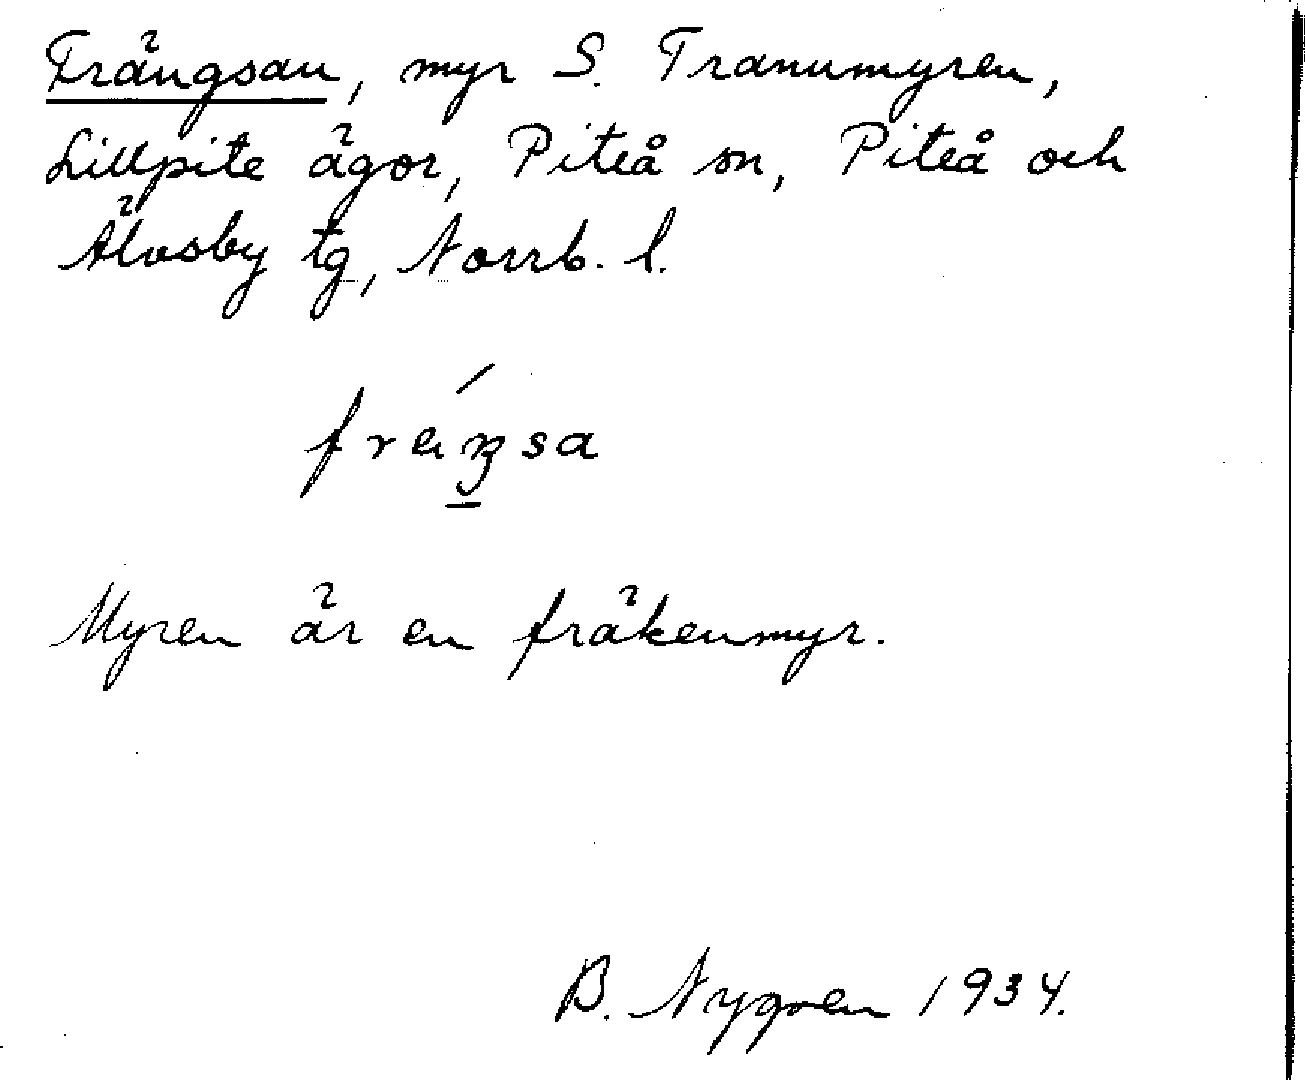 Frängsan, myr S. Tranumyren,
Lillpite ägor, Piteå sn, Piteå och
Älvsby tg, Norrb. l.
fräŋsa
Myren är en fräkenmyr.
B. Nygren 1934.